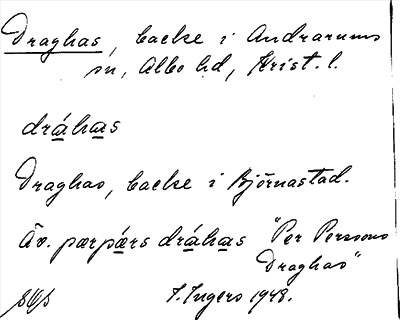 Draghas, backe i Andrarums
sn, Albo hd, Krist. l.
dráhas
Draghas, backe i Björnastad.
Äv. pærpǽrs dráhas "Per Perssons
Draghas"
I. Ingers 1948.